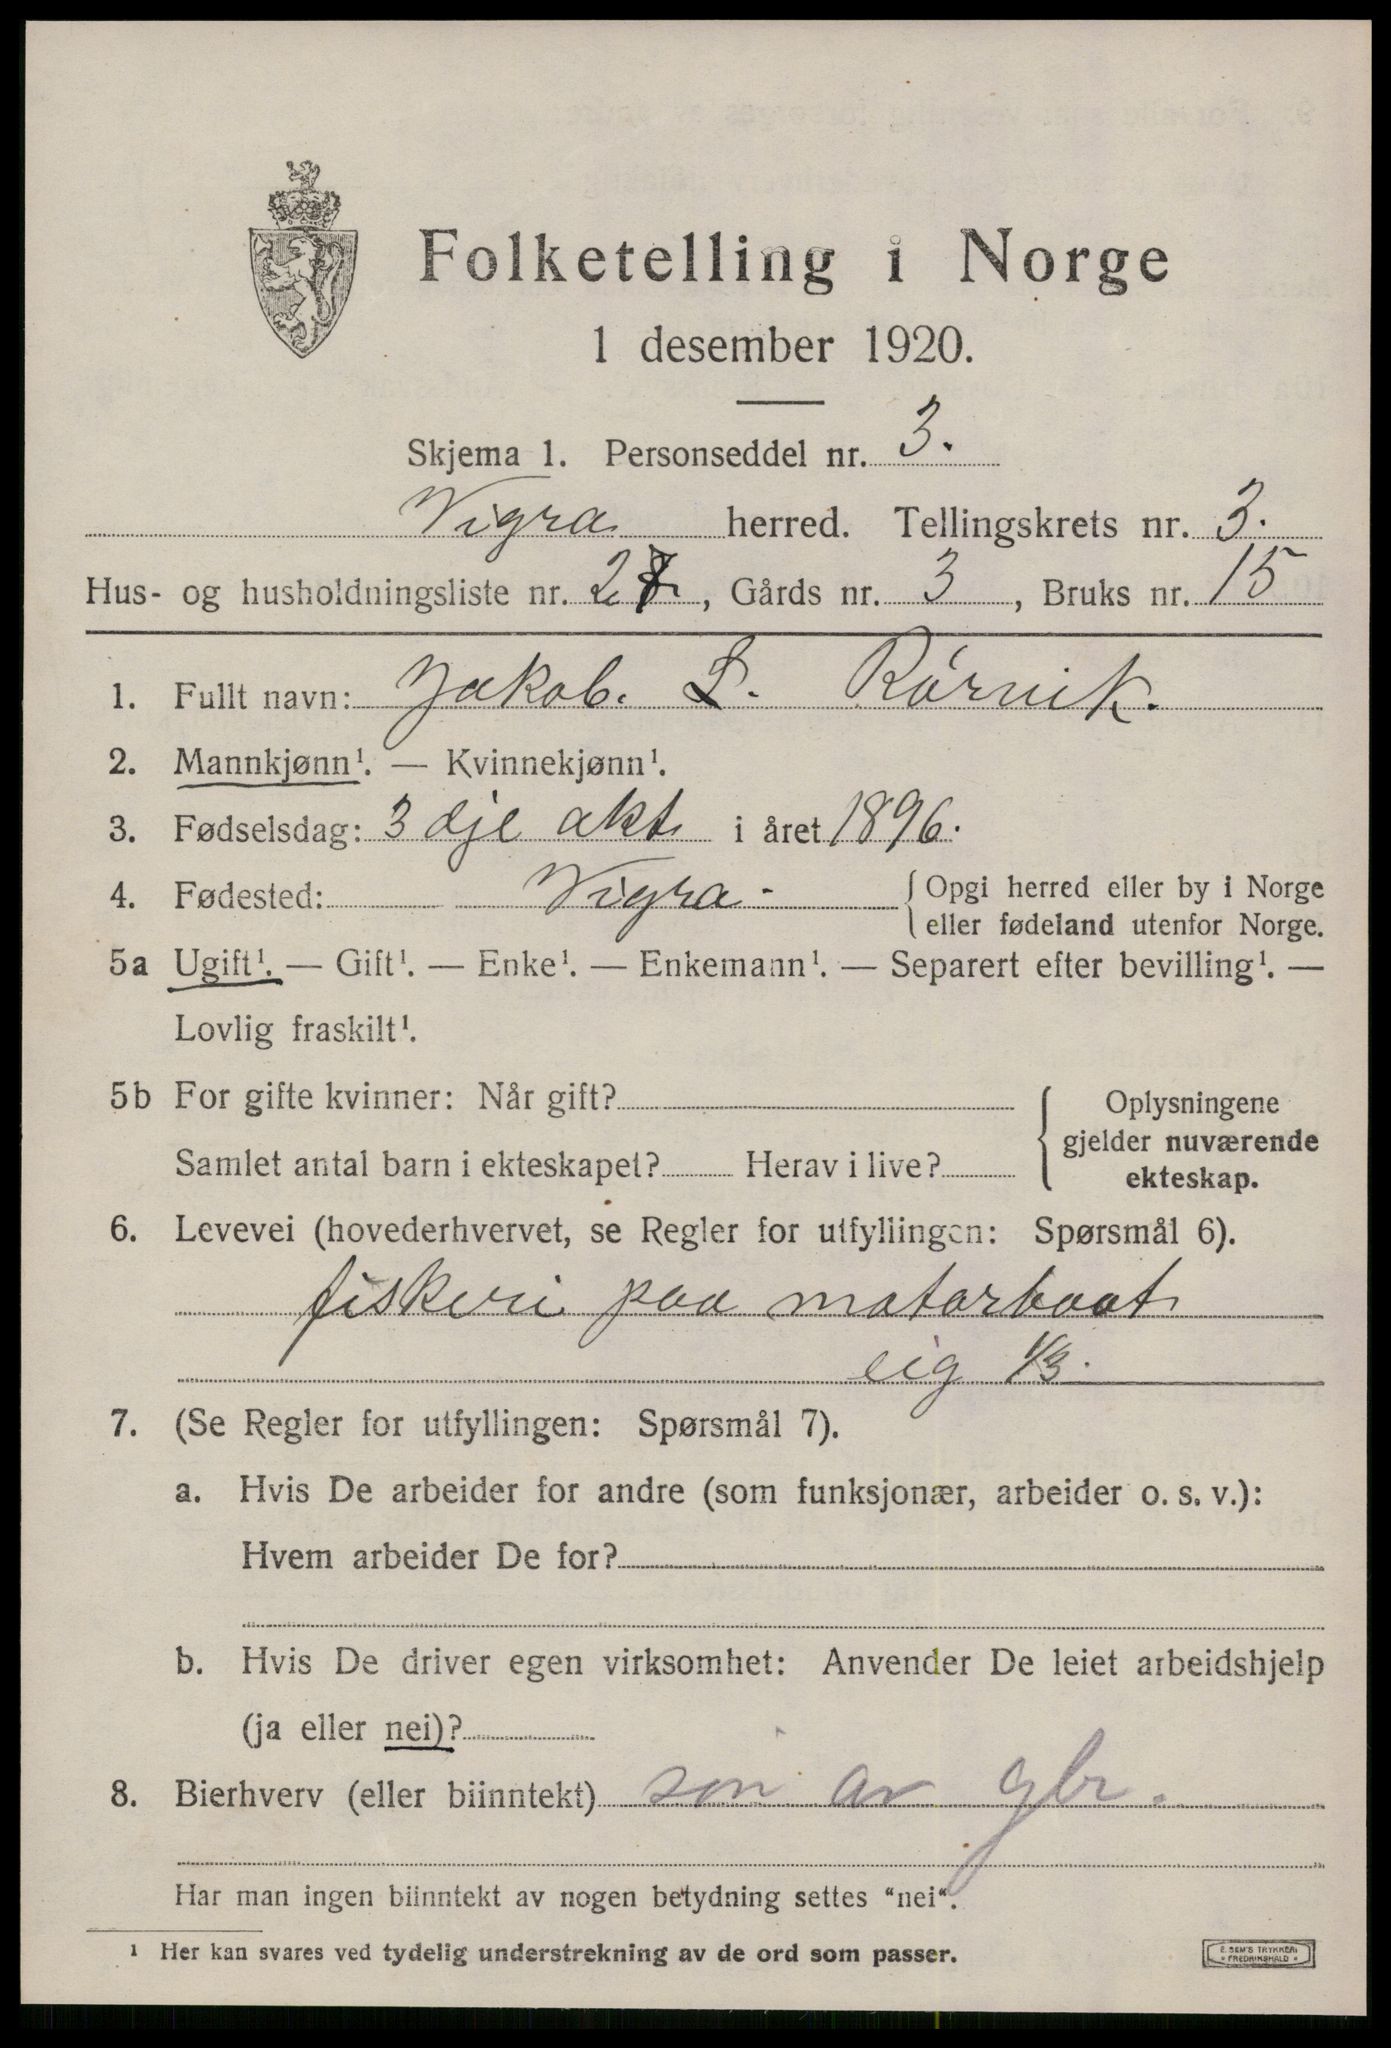 Folketelling i Norge
1 desember 1920.
Skjema 1. Personseddel nr. 3.
Vigra herred. Tellingskrets nr. 3.
Hus- og husholdningsliste nr. 27, Gårds nr. 3, Bruks nr. 15
1. Fullt navn: Jakob. L. Rørvik.
2. Mannkjønn¹. — Kvinnekjønn¹.
3. Fødselsdag: 3 dje okt i året 1896.
4. Fødested: Vigra - { Opgi herred eller by i Norge
eller fødeland utenfor Norge.
5a Ugift¹. — Gift¹. — Enke¹. — Enkemann¹. — Separert efter bevilling¹. —
Lovlig fraskilt¹.
5b For gifte kvinner: Når gift? { Oplysningene
gjelder nuværende
Samlet antal barn i ekteskapet? Herav i live?
ekteskap.
6. Levevei (hovederhvervet, se Regler for utfyllingen: Spørsmål 6).
fiskeri paa motorbaat
eig 1/3.
7. (Se Regler for utfyllingen: Spørsmål 7).
a. Hvis De arbeider for andre (som funksjonær, arbeider o. s. v.):
Hvem arbeider De for?
b. Hvis De driver egen virksomhet: Anvender De leiet arbeidshjelp
(ja eller nei)?
8. Bierhverv (eller biinntekt) søn av gbr.
Har man ingen biinntekt av nogen betydning settes “nei“.
1 Her kan svares ved tydelig understrekning av de ord som passer.
E. SEM'S TRYKKERI
• FREDRIKSHALD •